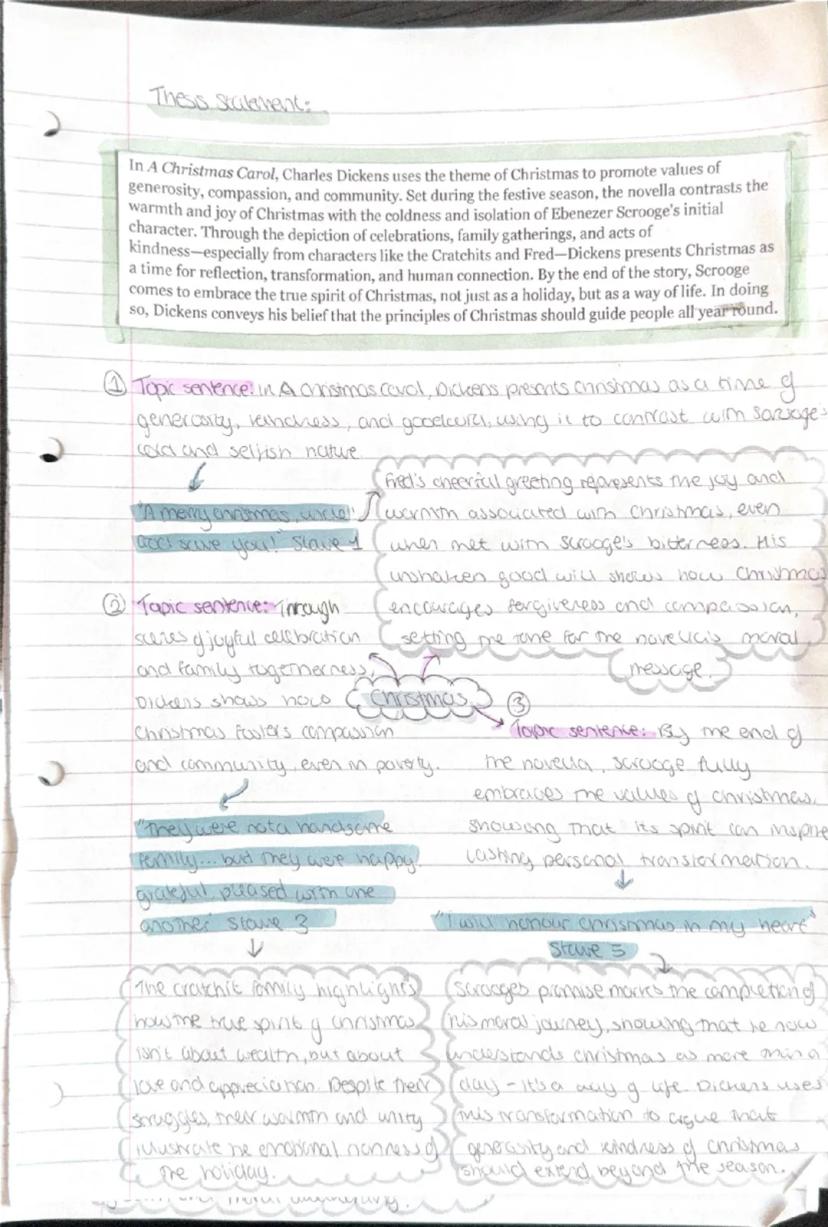 Thesis statement:
In A Christmas Carol, Charles Dickens uses the theme of Christmas to promote values of
generosity, compassion, and community. Set during the festive season, the novella contrasts the
warmth and joy of Christmas with the coldness and isolation of Ebenezer Scrooge's initial
character. Through the depiction of celebrations, family gatherings, and acts of
kindness—especially from characters like the Cratchits and Fred—Dickens presents Christmas as
a time for reflection, transformation, and human connection. By the end of the story, Scrooge
comes to embrace the true spirit of Christmas, not just as a holiday, but as a way of life. In doing
so, Dickens conveys his belief that the principles of Christmas should guide people all year round.
① Topic sentence: in A Christmas Carol, Dickens presents Christmas as a time of
generosity, kindness, and goodwill, using it to contrast with Scrooge's
cold and selfish nature
"A merry christmas, uncle!
God save you!" Stave 1
Fred's cheerful greeting represents the joy and
warmth associated with Christmas, even
when met with Scrooge's bitterness. His
unshaken good will shows how Christmas
encourages forgiveness and compassion,
setting the tone for the novella's moral
message.
② Topic sentence: Through
scenes of joyful celebration
and family togetherness,
Dickens shows how
Christmas fosters compassion
and community, even in poverty.
Christmas
"They were not a handsome
family... but they were happy,
grateful, pleased with one
another Stave 3
The Cratchit family highlights
how the true spirit of Christmas
isn't about wealth, but about
love and appreciation. Despite their
struggles, their warmth and unity
illustrate he emotional of
the holiday.
③
Topic sentence: By the end of
the novella, Scrooge fully
embraces the values of Christmas,
showing that its spirit can inspire
lasting personal transformation.
"I will honour Christmas in my heart"
Stave 5
Scrooges promise marks the completion of
his moral journey, showing that he now
understands christmas as more than a
day - it's a way of life. Dickens uses
this transformation to argue that
generosity and kindness of Christmas
should extend beyond the season.